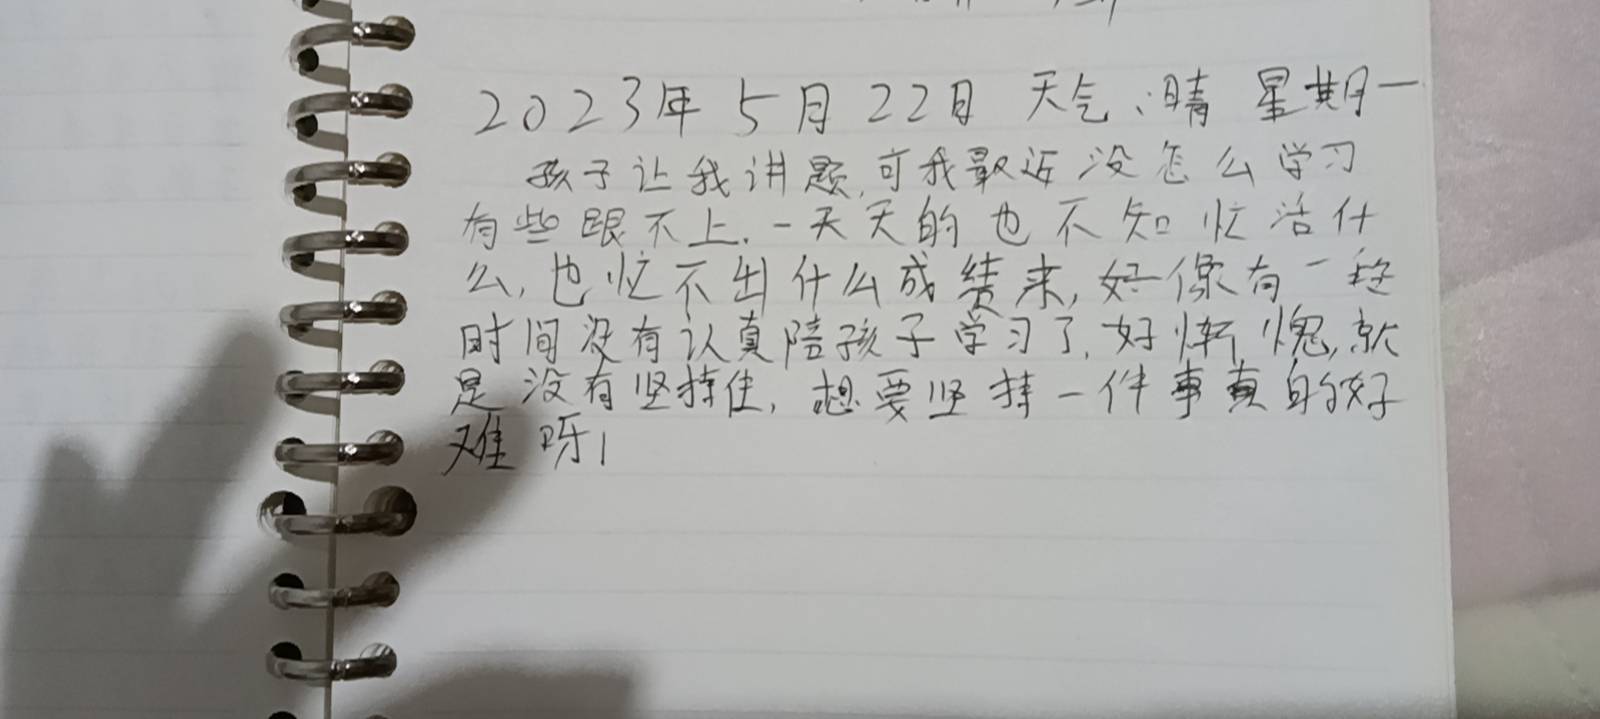 2023年 5月 22日 天气:晴 星期一
孩子让我讲题,可我最近没怎么学习
有些跟不上.一天天的也不知忙活什
么,也忙不出什么成绩来,好像有一段
时间没有认真陪孩子学习了,好惭愧,就
是没有坚持住,想要坚持一件事真的好
难呀!